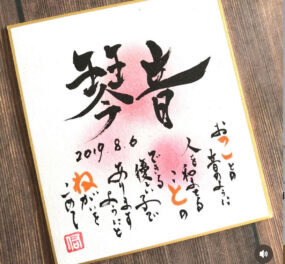 琴音
2019 8.6
おことの
音のように
人を和ませる
ことの
できる
優しい子で
あります
ようにと
ねがいを
こめて